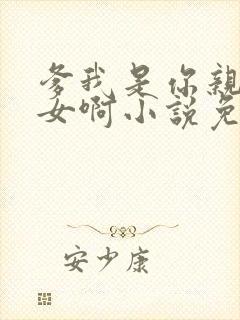 爹我是你亲
女啊小说免
安少康